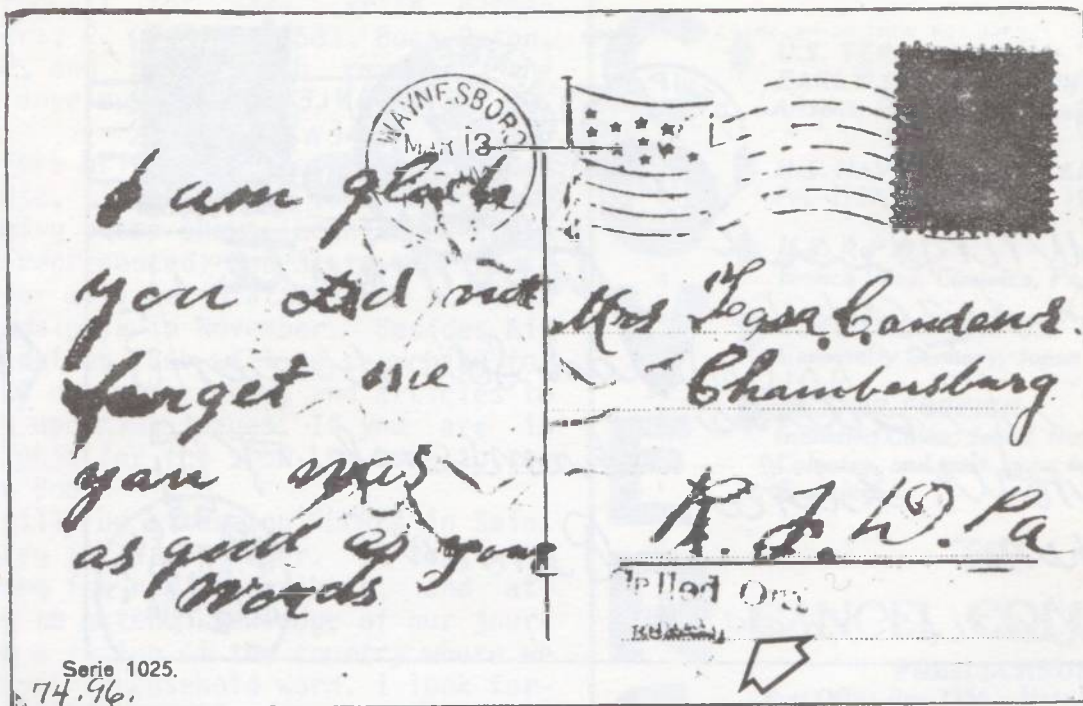 WAYNESBORO
MAR 13
I am glad
you did not
forget me
you was
as good as your
words
Mrs
Chambersburg
R. F. D. Pa
Serie 1025.
74.96.